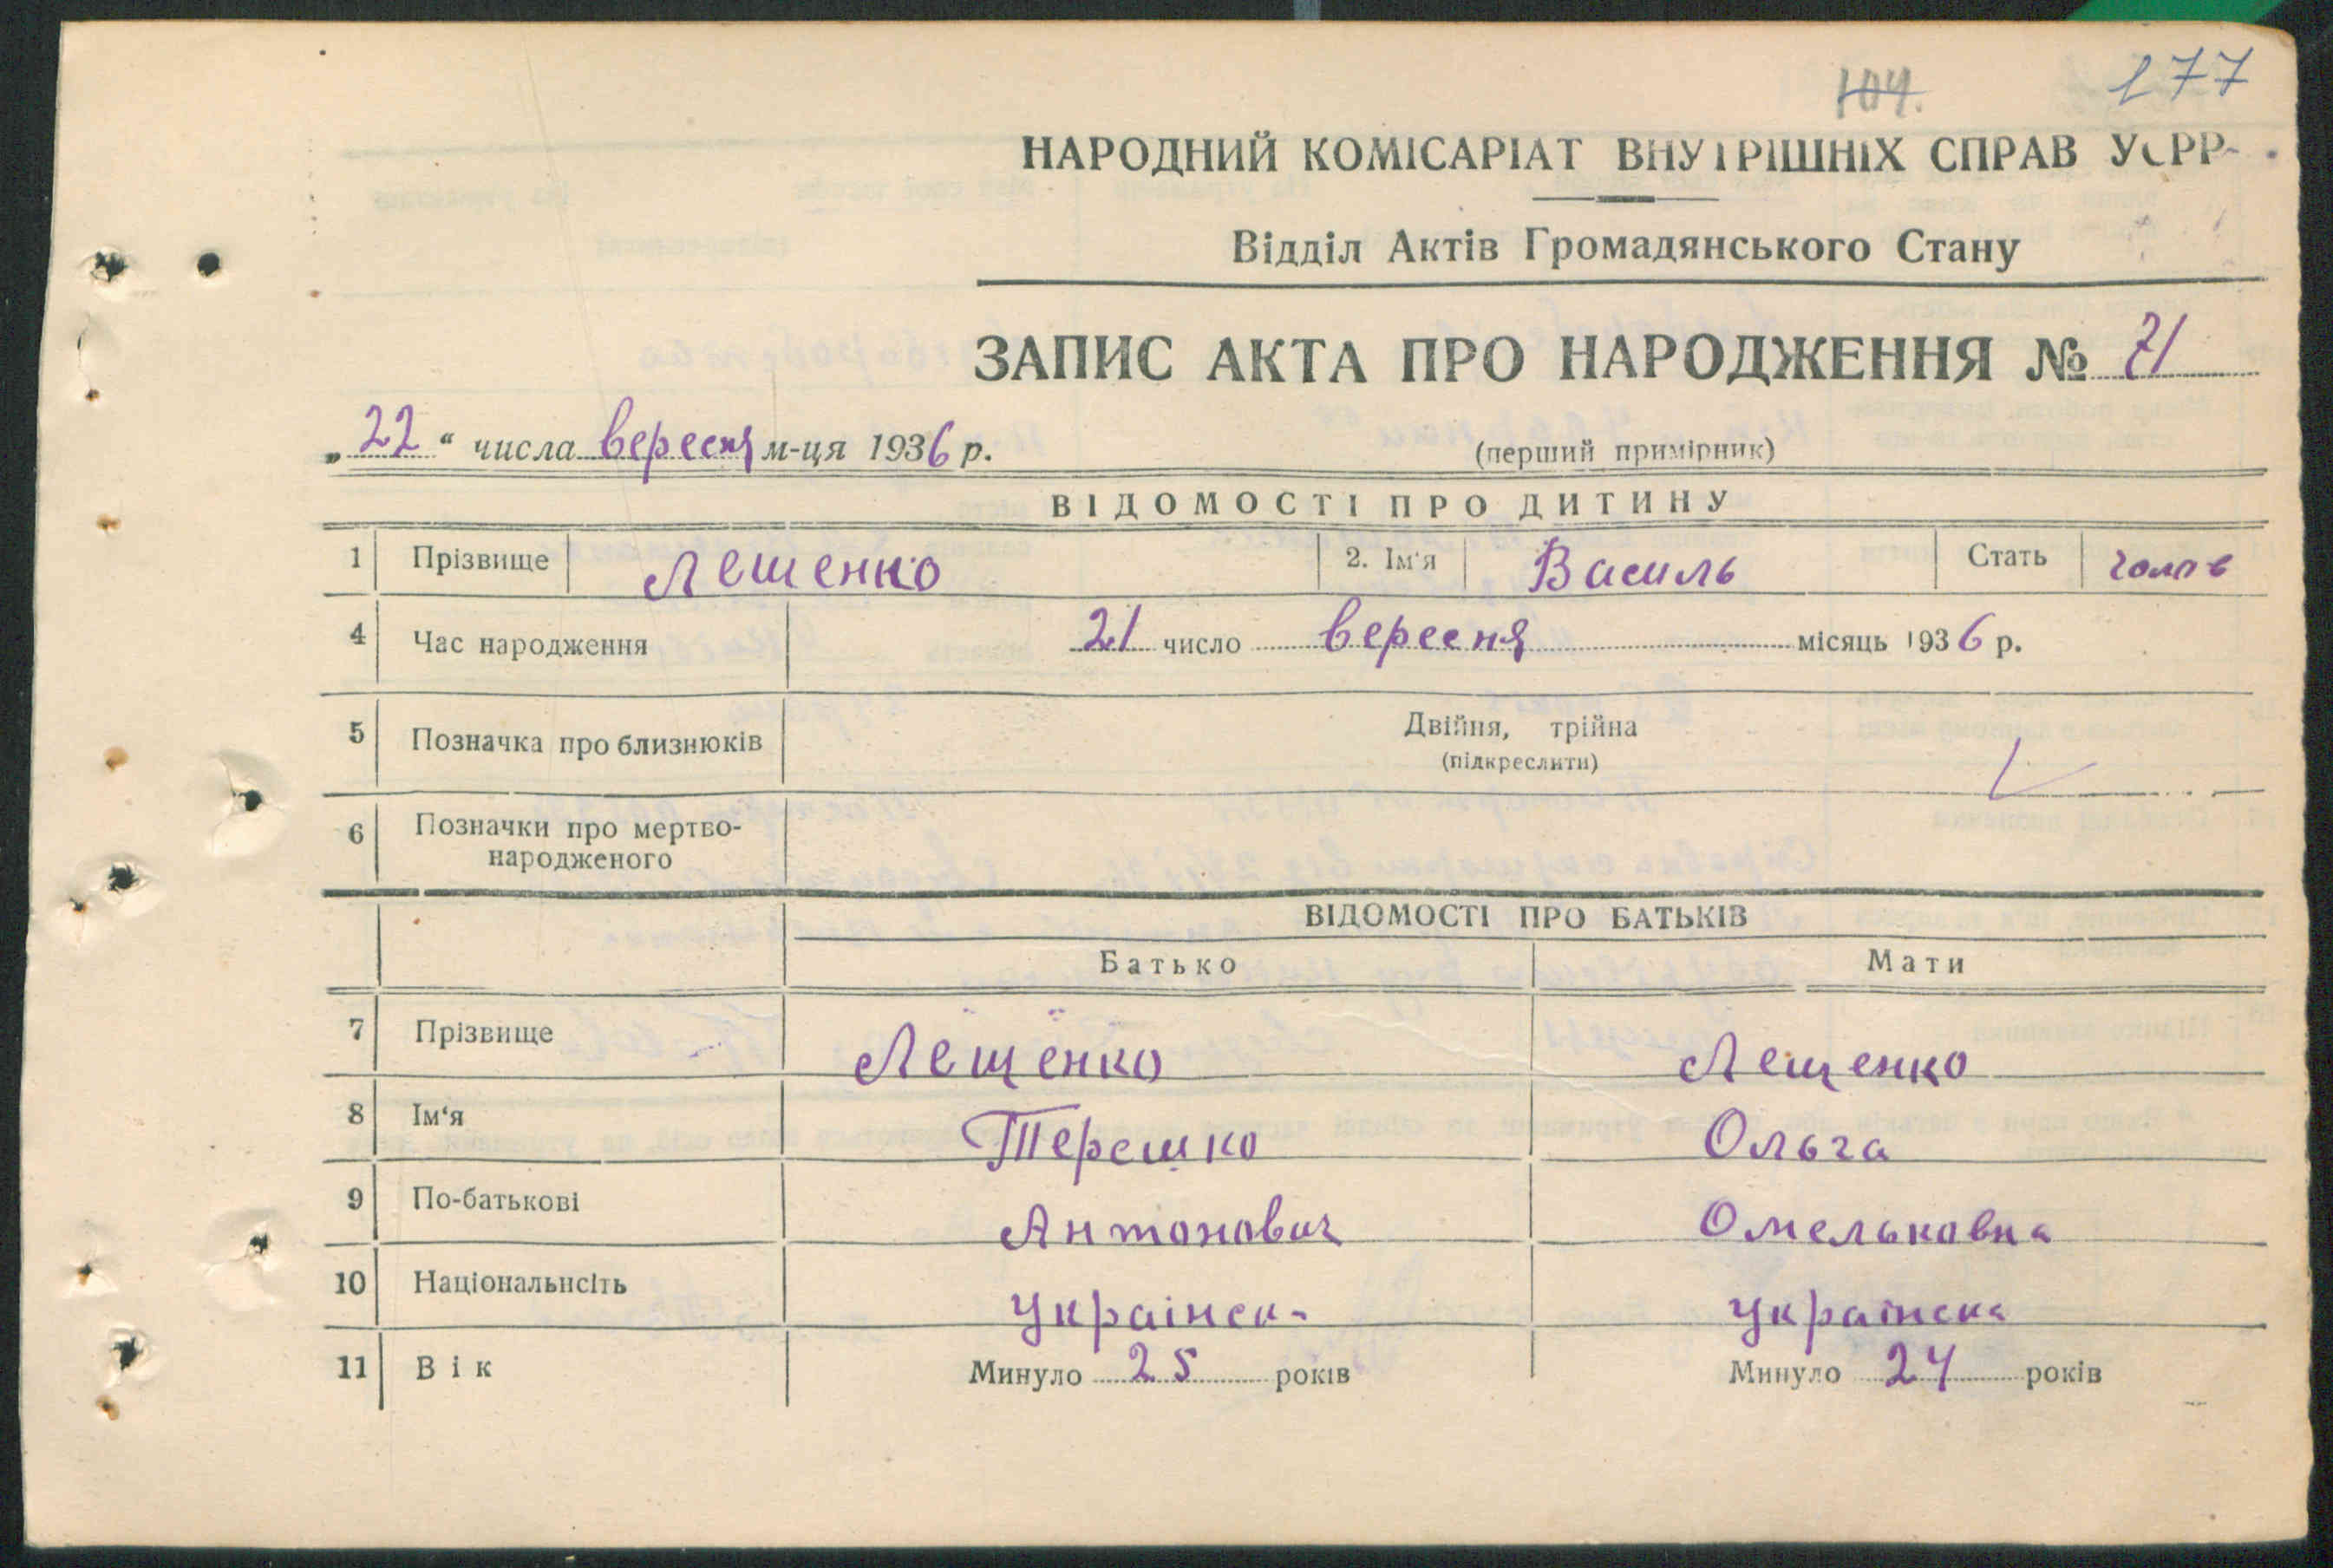 104.
177
НАРОДНИЙ КОМІСАРІАТ ВНУТРІШНІХ СПРАВ УСРР
Відділ Актів Громадянського Стану
ЗАПИС АКТА ПРО НАРОДЖЕННЯ № 71
„22“ числа вересня м-ця 1936 р.
(перший примірник)
ВІДОМОСТІ ПРО ДИТИНУ
1 Прізвище Лешенко 2. Ім'я Василь Стать чолов
4 Час народження 21 число вересня місяць 1936 р.
5 Позначка про близнюків Двійня, трійна
(підкреслити)
6 Позначки про мертво-
народженого
ВІДОМОСТІ ПРО БАТЬКІВ
Батько Мати
7 Прізвище Лещенко Лещенко
8 Ім‘я Терешко Ольга
9 По-батькові Антонович Омельковна
10 Національнсіть Україн­ск. Українска
11 Вік Минуло 25 років Минуло 24 років